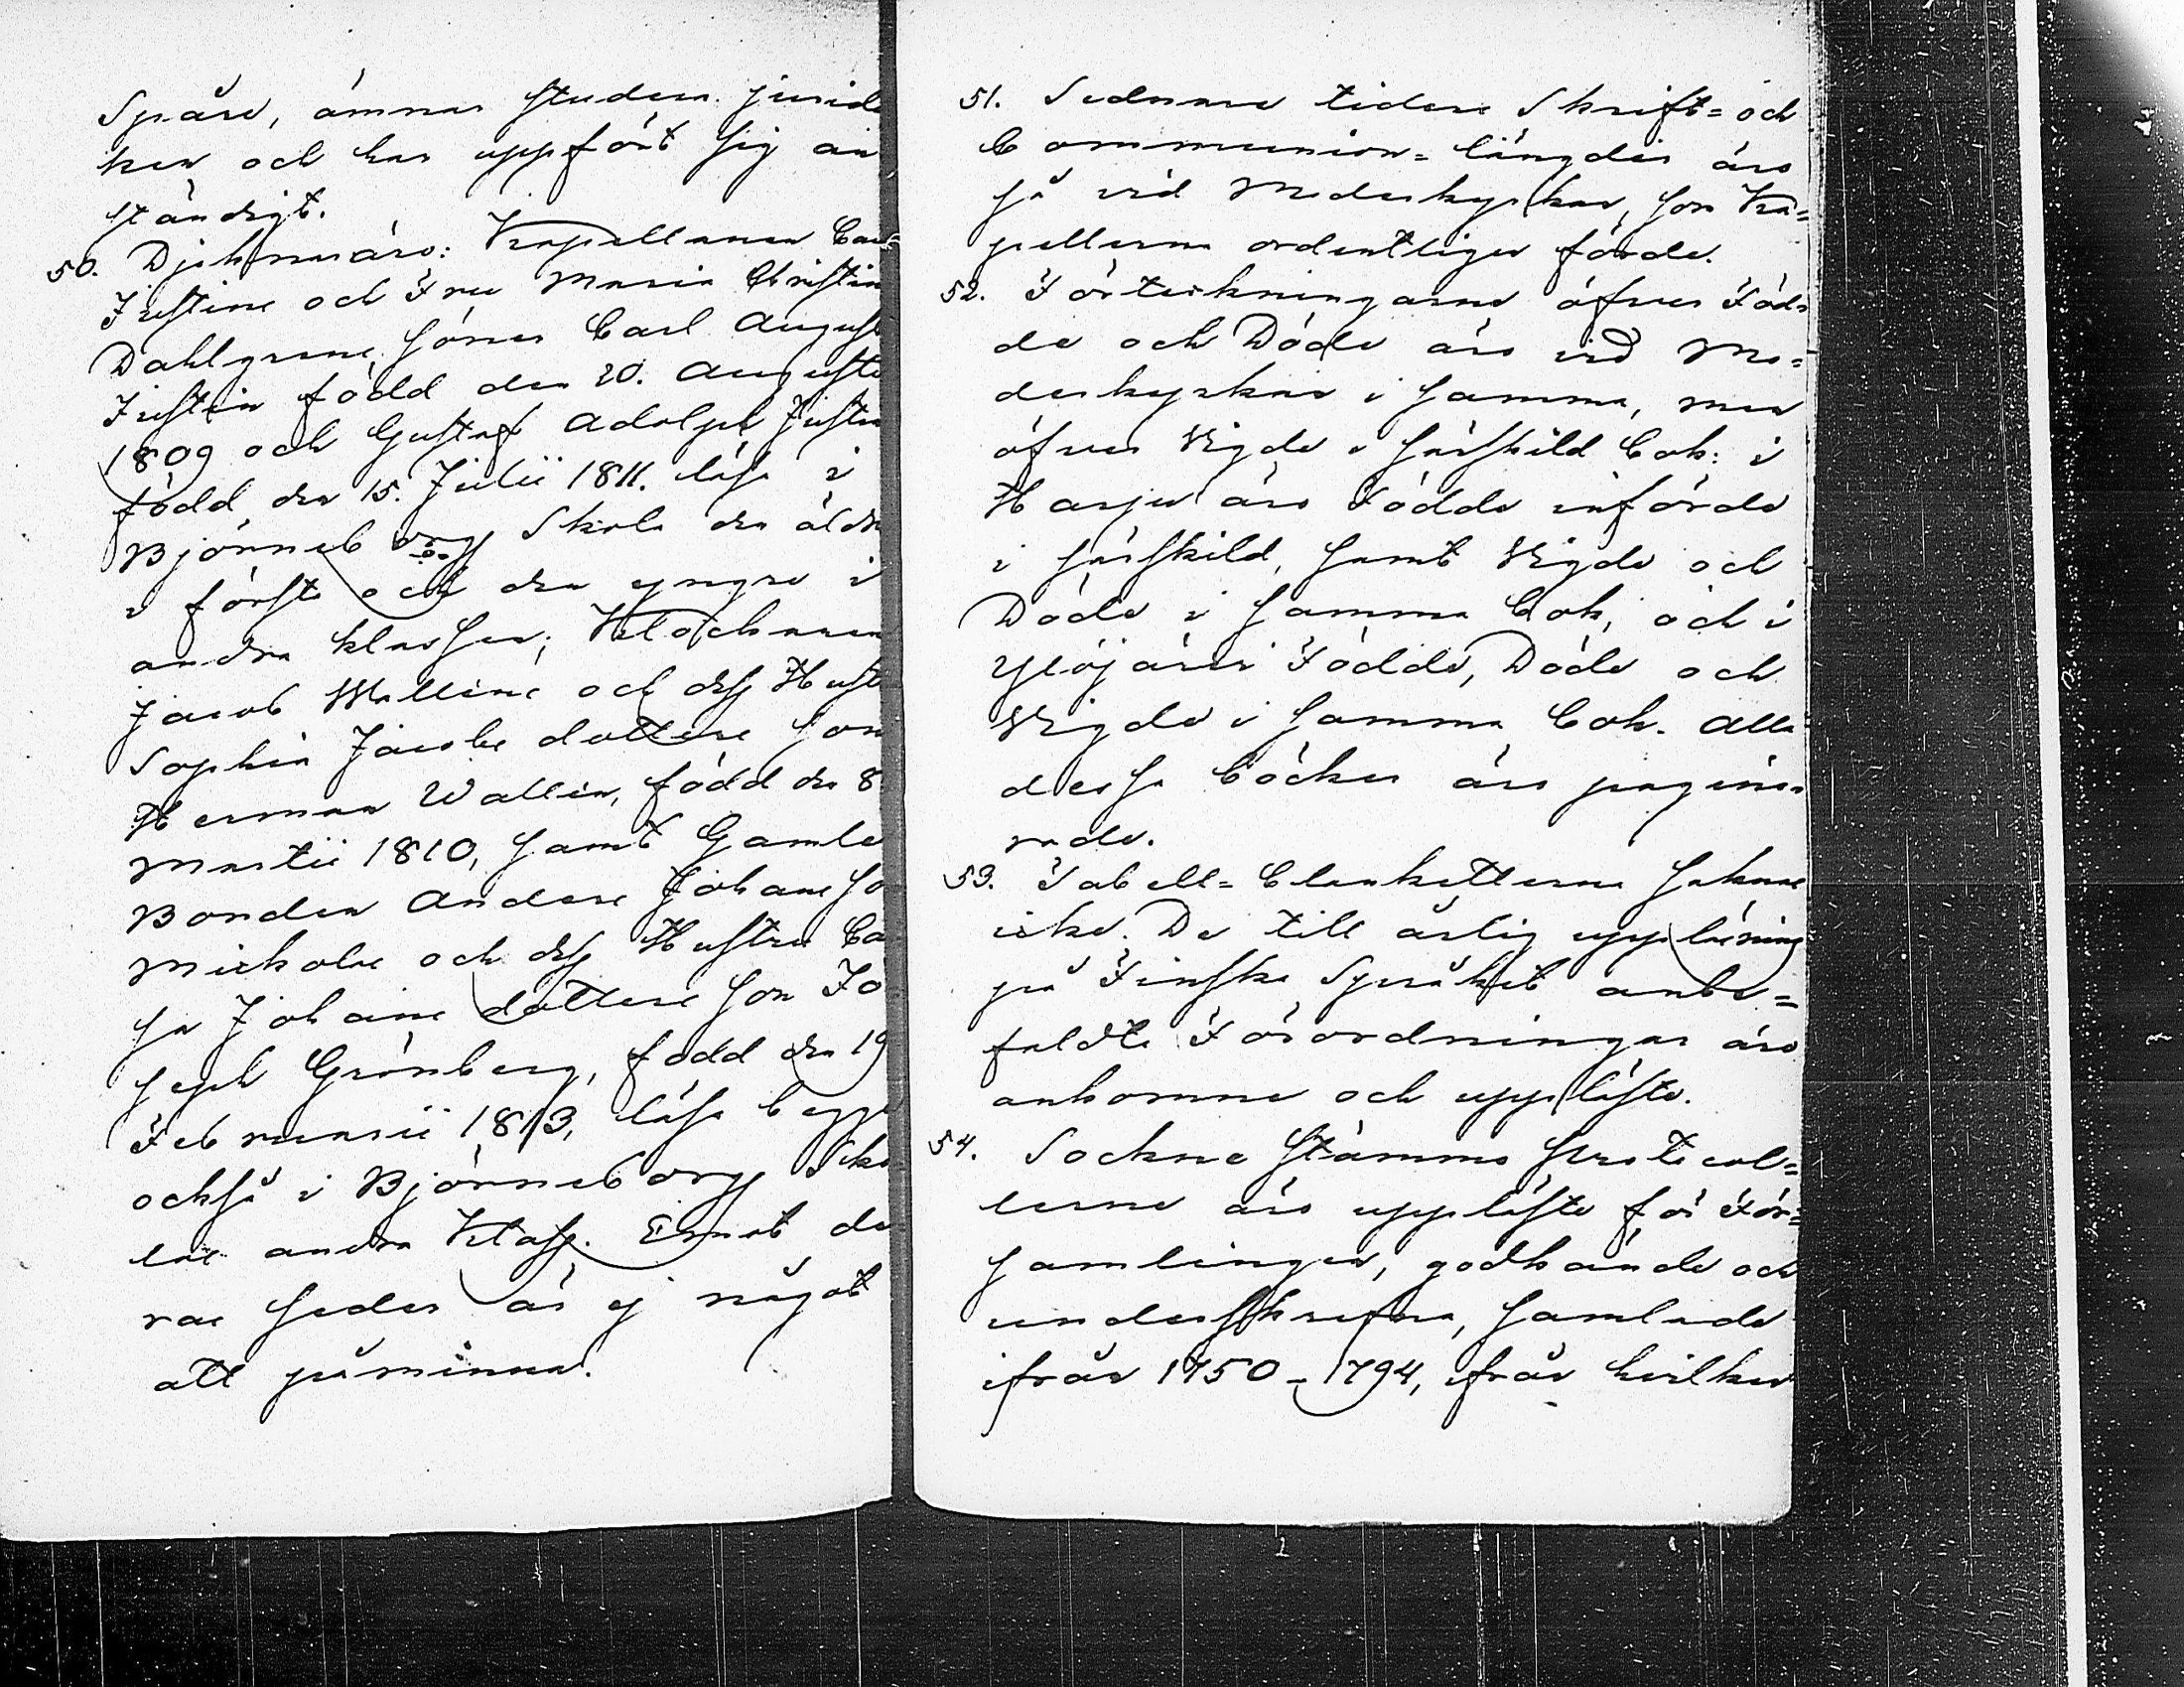 Spåro, ämnar studera juridi
ken och har uppfört sig an
ständigt.
50. Djeknar äro: Kapellanen Carl
Justins och Fru Maria Christina
Dahlgrens söner Carl August
Justin född den 20. Augusti
1809 och Gustaf Adolph Justin
född den 15. Julii 1811. läsa i
Björneborgs Skola den äldre
i första och den yngre i
andra klassen; Klockaren
Jacob Wallins och dess Hustru
Sophia Jacobs dotters son
Herman Wallin, född den 8
Martii 1810, samt Gamle
Bonden Anders Johans son
Mickols och dess Hustru Ca
sa Johans dotters son Jo
seph Grönberg, född den 19
Februarii 1813, läsa begge
också i Björneborgs Sko
las andra Klass. Emot de
ras seder är ej något
att påminna.
51. Sednare tiders Skrift= och
Communion= längder äro
så vid Moderkyrkan, som Ka=
pellerna ordentligen förde.
52. Förteckningarne öfver Föd=
de och Döde äro vid Mo=
derkyrkan i samma, men
öfver Vigde i särskild bok: i
Harju äro Födde införde
i särskild, samt Vigde och
Döde i samma bok, och i
Ylöjärvi Födde, Döde och
Vigde i samma bok. Alla
dessa böcker äro pagine=
rade.
53. Tabell= blanketterna saknas
icke. De till årlig uppläsning
på Finska Språket anbe=
faldte Förordningar äro
ankomne och uppläste.
54. Sockne stämmo protocol=
lerne äro uppläste för För=
samlingen, godkände och
underskrefne, samlade
ifrån 1750 - 1794, ifrån hvilken